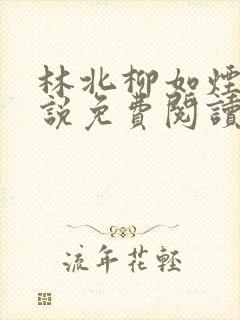 林北柳如煙
說免費閱讀
流年花輕